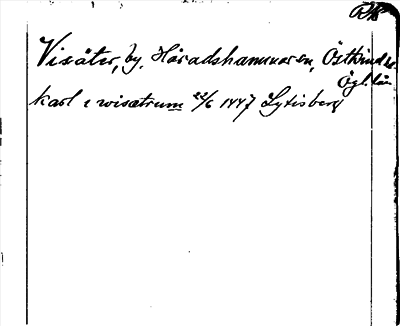 Visäter, by. Häradshammaren, Östkind
Ögl. län
karl i wisætrum 22/6 1447 Lytisberg